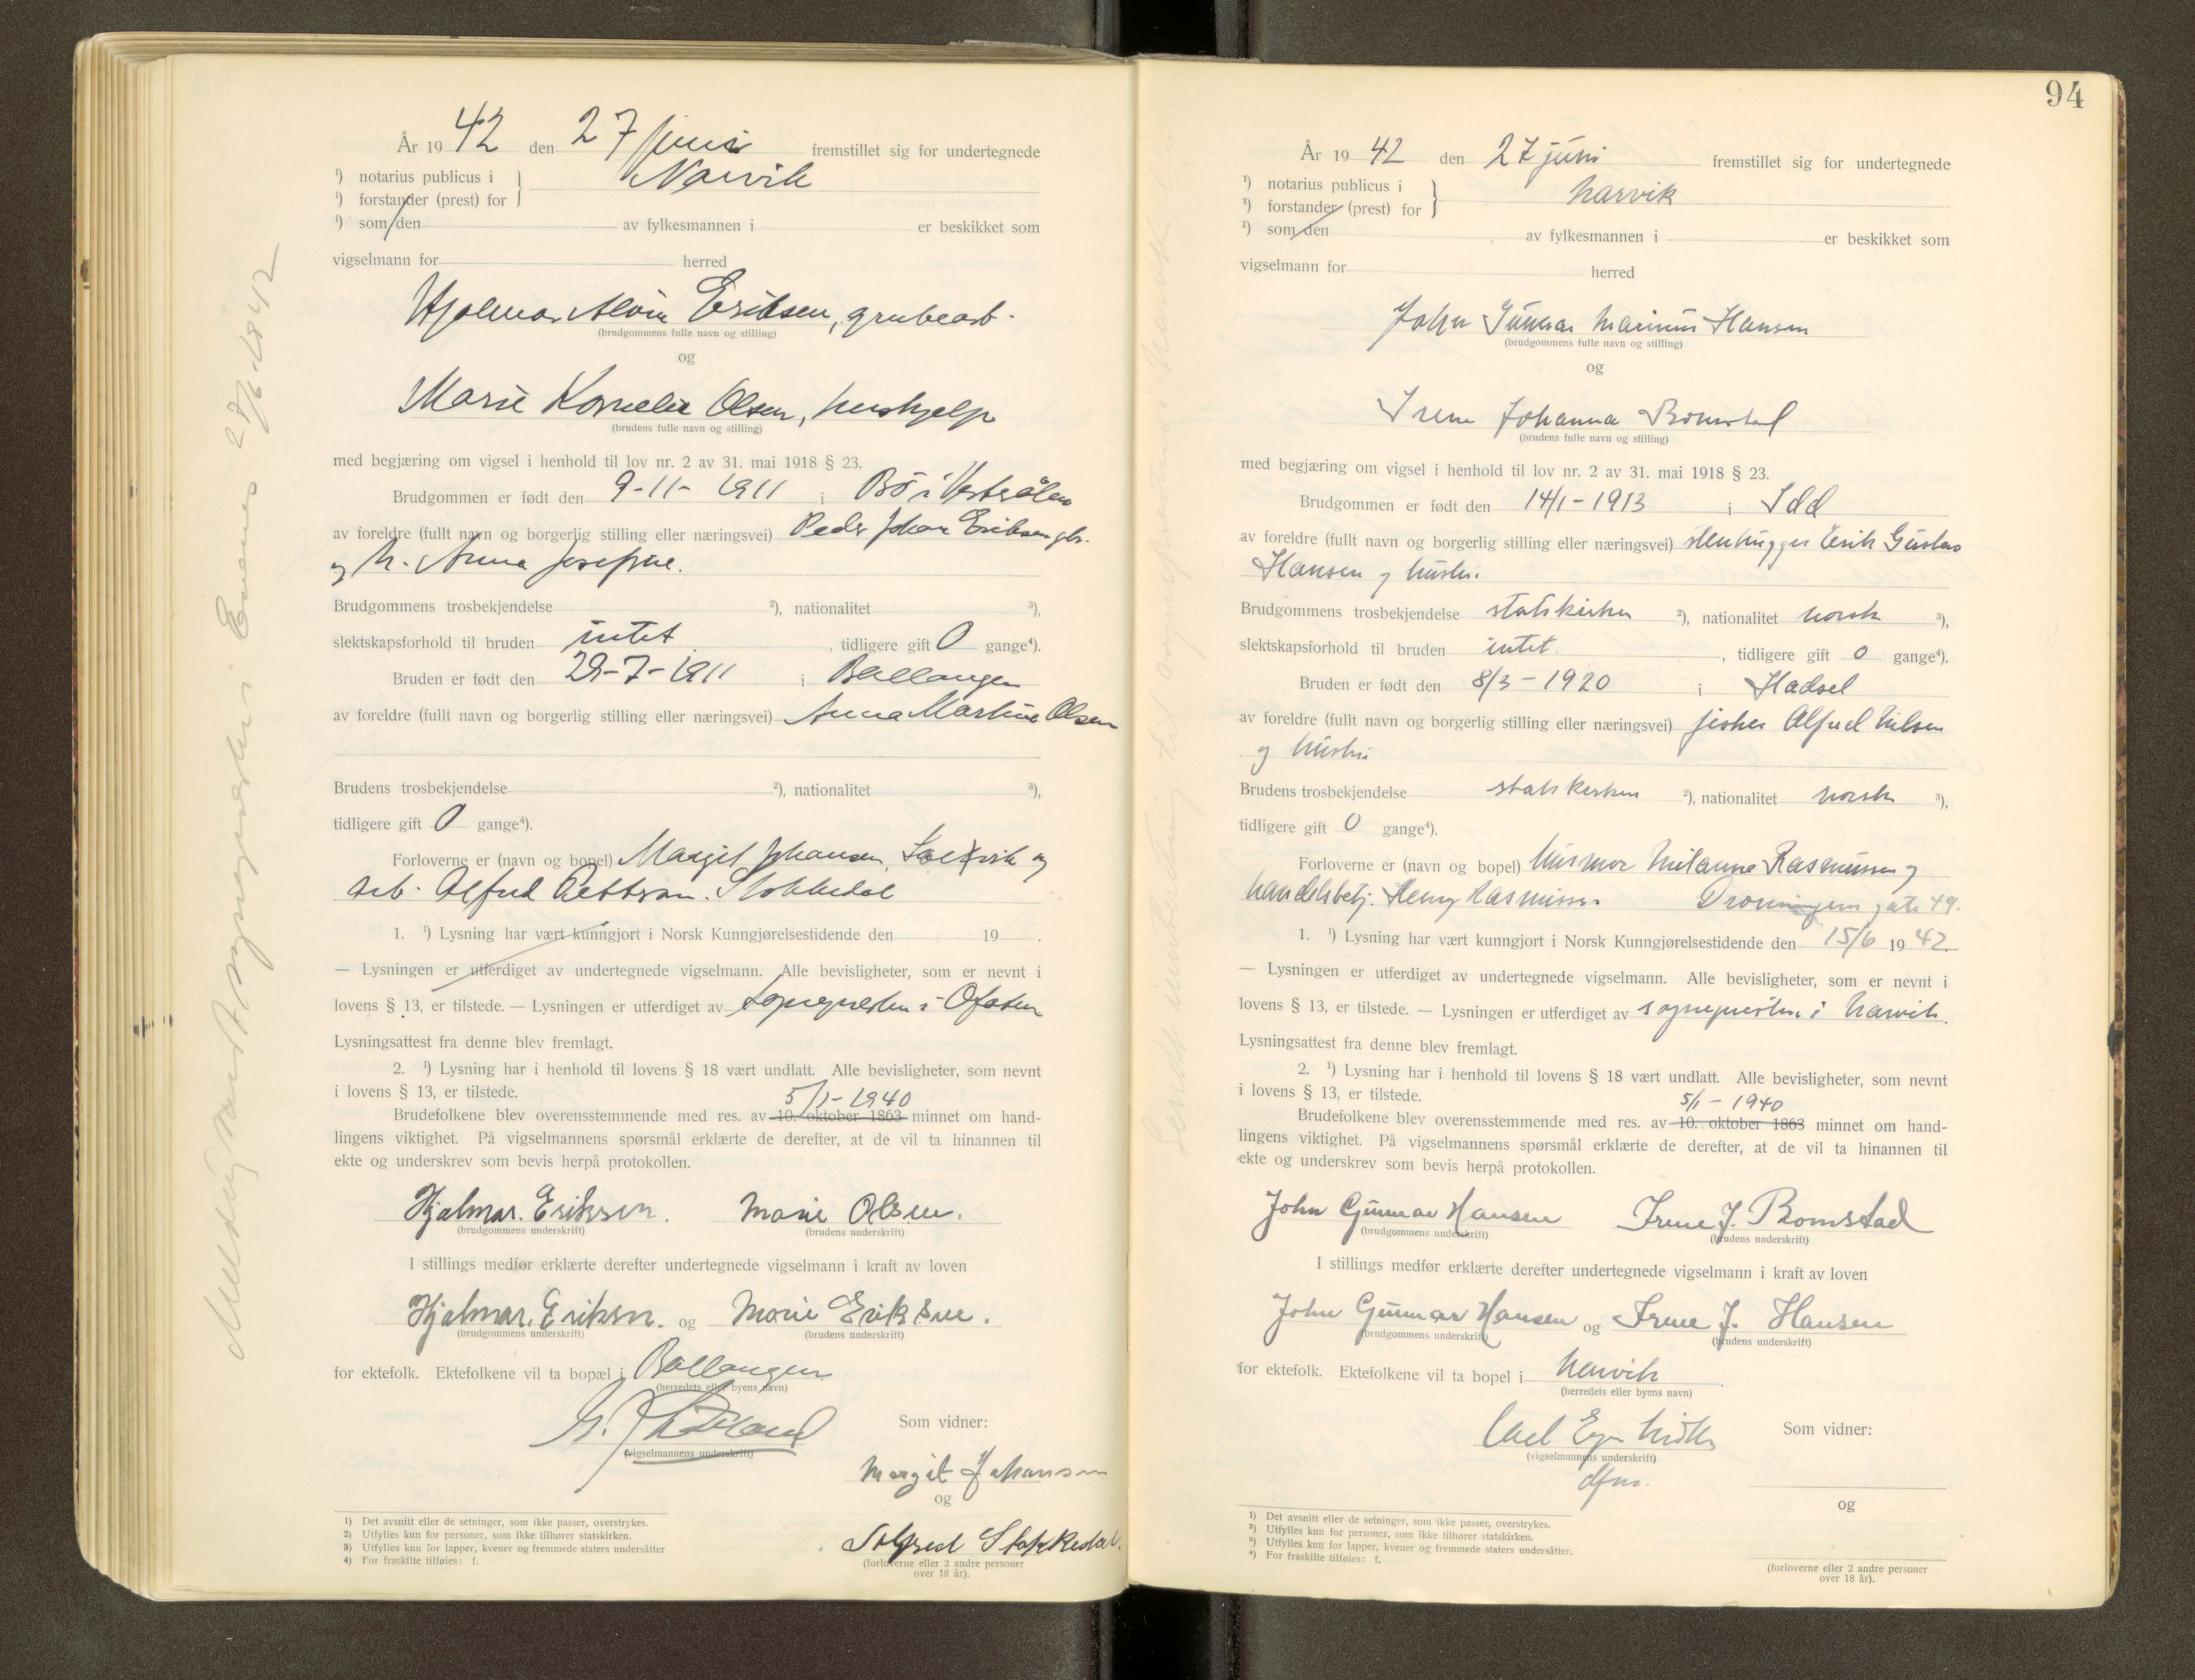 År 1942 den 27 juni fremstillet sig for undertegnede
¹) notarius publicus i
Narvik
¹) forstander (prest) for
¹) som den av fylkesmannen i er beskikket som
vigselmann for herred
Hjalmar Alvin Eriksen, grubearb.
(brudgommens fulle navn og stilling)
og
Marie Kornelie Olsen, hushjelp
(brudens fulle navn og stilling)
med begjæring om vigsel i henhold til lov nr. 2 av 31. mai 1918 § 23.
Brudgommen er født den 9-11-1911 i Bø i Vesterålen
av foreldre (fullt navn og borgerlig stilling eller næringsvei) Peder Johan Eriksen gbr.
og h. Anna Josefine.
Brudgommens trosbekjendelse ²), nationalitet ³),
slektskapsforhold til bruden intet, tidligere gift 0 gange⁴).
Bruden er født den 29-7-1911 i Ballangen
av foreldre (fullt navn og borgerlig stilling eller næringsvei) Anna Martine Olsen
Brudens trosbekjendelse ²), nationalitet ³),
tidligere gift 0 gange⁴).
Forloverne er (navn og bopel) Margit Johansen, og
arb. Alfred Pettersen. Stokkedal
1. ¹) Lysning har vært kunngjort i Norsk Kunngjørelsestidende den 19 .
— Lysningen er utferdiget av undertegnede vigselmann. Alle bevisligheter, som er nevnt i
lovens § 13, er tilstede. — Lysningen er utferdiget av sognepresten i Ofoten
Lysningsattest fra denne blev fremlagt.
2. ¹) Lysning har i henhold til lovens § 18 vært undlatt. Alle bevisligheter, som nevnt
i lovens § 13, er tilstede.
5/1-1940
Brudefolkene blev overensstemmende med res. av 10. oktober 1863 minnet om hand-
lingens viktighet. På vigselmannens spørsmål erklærte de derefter, at de vil ta hinannen til
ekte og underskrev som bevis herpå protokollen.
Hjalmar. Eriksen. Marie Olsen.
(brudgommens underskrift) (brudens underskrift)
I stillings medfør erklærte derefter undertegnede vigselmann i kraft av loven
Hjalmar. Eriksen. og Marie Eriksen.
(brudgommens underskrift) (brudens underskrift)
for ektefolk. Ektefolkene vil ta bopæl i Ballangen
(herredets eller byens navn)
(vigselmannens underskrift)
Som vidner:
Margit Johansen
og
Stokkedal.
(forloverne eller 2 andre personer
over 18 år).
1) Det avsnitt eller de setninger, som ikke passer, overstrykes.
2) Utfylles kun for personer, som ikke tilhører statskirken.
3) Utfylles kun for lapper, kvener og fremmede staters undersåtter
4) For fraskilte tilføies: f.
Melding sendt sognepresten i Evenes 28/6-1942
94
År 1942 den 27 juni fremstillet sig for undertegnede
¹) notarius publicus i
Narvik
¹) forstander (prest) for
¹) som den av fylkesmannen i er beskikket som
vigselmann for herred
John Gunnar Marinius Hansen
(brudgommens fulle navn og stilling)
og
Irene Johanna Bromstad
(brudens fulle navn og stilling)
med begjæring om vigsel i henhold til lov nr. 2 av 31. mai 1918 § 23.
Brudgommen er født den 14/1-1913 i Idd
av foreldre (fullt navn og borgerlig stilling eller næringsvei) stenhugger Erik Gustav
Hansen og hustru
Brudgommens trosbekjendelse statskirken ²), nationalitet norsk ³),
slektskapsforhold til bruden intet., tidligere gift 0 gange⁴).
Bruden er født den 8/3-1920 i Hadsel
av foreldre (fullt navn og borgerlig stilling eller næringsvei) fisker Alfred Nilsen
og hustru
Brudens trosbekjendelse statskirken ²), nationalitet norsk ³),
tidligere gift 0 gange⁴).
Forloverne er (navn og bopel) husmor Rasmussen og
handelsbetj. Henry Rasmussen Dronningens gate 49.
1. ¹) Lysning har vært kunngjort i Norsk Kunngjørelsestidende den 15/6 1942
— Lysningen er utferdiget av undertegnede vigselmann. Alle bevisligheter, som er nevnt i
lovens § 13, er tilstede. — Lysningen er utferdiget av sognepresten i Narvik.
Lysningsattest fra denne blev fremlagt.
2. ¹) Lysning har i henhold til lovens § 18 vært undlatt. Alle bevisligheter, som nevnt
i lovens § 13, er tilstede.
5/1-1940
Brudefolkene blev overensstemmende med res. av 10. oktober 1863 minnet om hand-
lingens viktighet. På vigselmannens spørsmål erklærte de derefter, at de vil ta hinannen til
ekte og underskrev som bevis herpå protokollen.
John Gunnar Hansen Irene J. Bromstad
(brudgommens underskrift) (brudens underskrift)
I stillings medfør erklærte derefter undertegnede vigselmann i kraft av loven
John Gunnar Hansen og Irene J. Hansen
(brudgommens underskrift) (brudens underskrift)
for ektefolk. Ektefolkene vil ta bopel i Narvik.
(herredets eller byens navn)
(vigselmannens underskrift)
dfm.
Som vidner:
og
(forloverne eller 2 andre personer
over 18 år).
¹) Det avsnitt eller de setninger, som ikke passer, overstrykes.
²) Utfylles kun for personer, som ikke tilhører statskirken.
³) Utfylles kun for lapper, kvener og fremmede staters undersåtter.
⁴) For fraskilte tilføies: f.